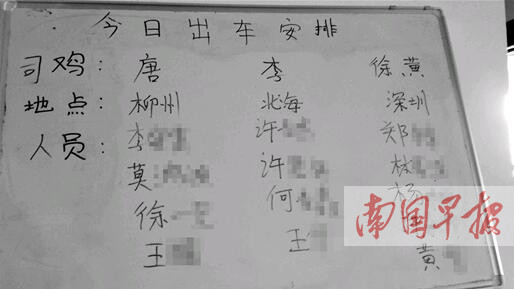 今日出车安排
司鸡： 唐 李 徐黄
地点： 柳州 北海 深圳
人员： 李 许 郑
莫 许 林
徐 何 杨
王 王
黄
南国早报